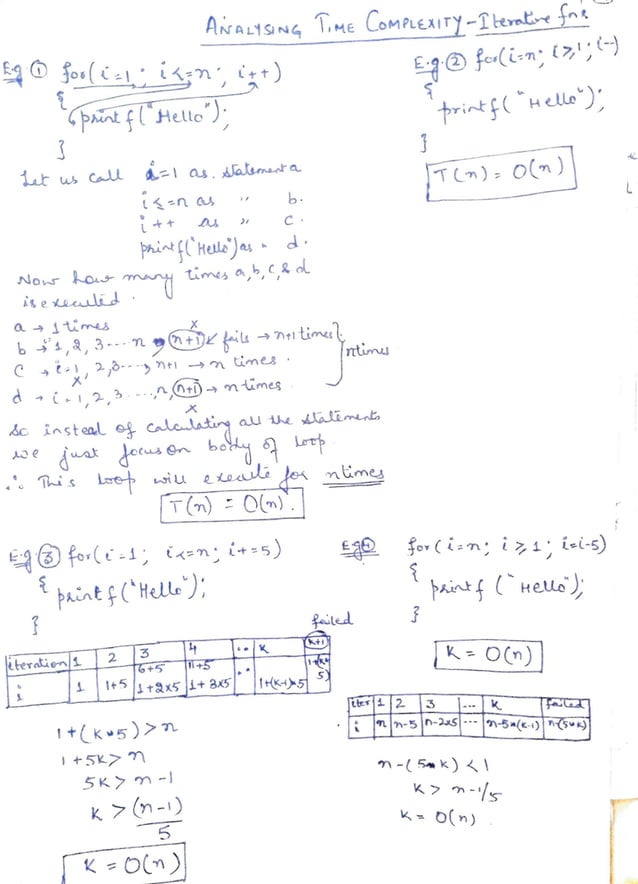 ANALYSING TIME COMPLEXITY - Iterative fns
E.g ① for(i=1; i<=n; i++)
{
printf("Hello");
}
Let us call i=1 as statement a
i<=n as " b.
i++ as " c.
printf("Hello") as " d.
Now how many times a, b, c, & d
is executed.
a → 1 times
b → 1, 2, 3 ... n, n+1 x fails → n+1 times
c → i=1, 2, 3 ..., n+1 → n times.
d → i=1, 2, 3 ..., n, n+1 → n times.
x
x
} n times
So instead of calculating all the statements
we just focus on body of loop.
∴ This loop will execute for n times
T(n) = O(n).
E.g. ② for(i=n; i>,1; i--)
{
printf("Hello");
}
T(n) = O(n)
E.g ③ for(i=1; i<=n; i+=5)
{
printf("Hello");
}
failed
iteration 1 2 3 4 .. k k+1
6+5 11+5
i 1 1+5 1+2x5 1+3x5 .. 1+(k-1)x5 1+(k*5)
1+(k*5) > n
1+5k > n
5k > n-1
k > (n-1)
5
k = O(n)
E.g ④ for(i=n; i>,1; i=i-5)
{
printf("Hello");
}
k = O(n)
iter 1 2 3 ... k failed
i n n-5 n-2x5 ... n-5*(k-1) n-(5*k)
n-(5*k) < 1
k > n-1/5
k = O(n).